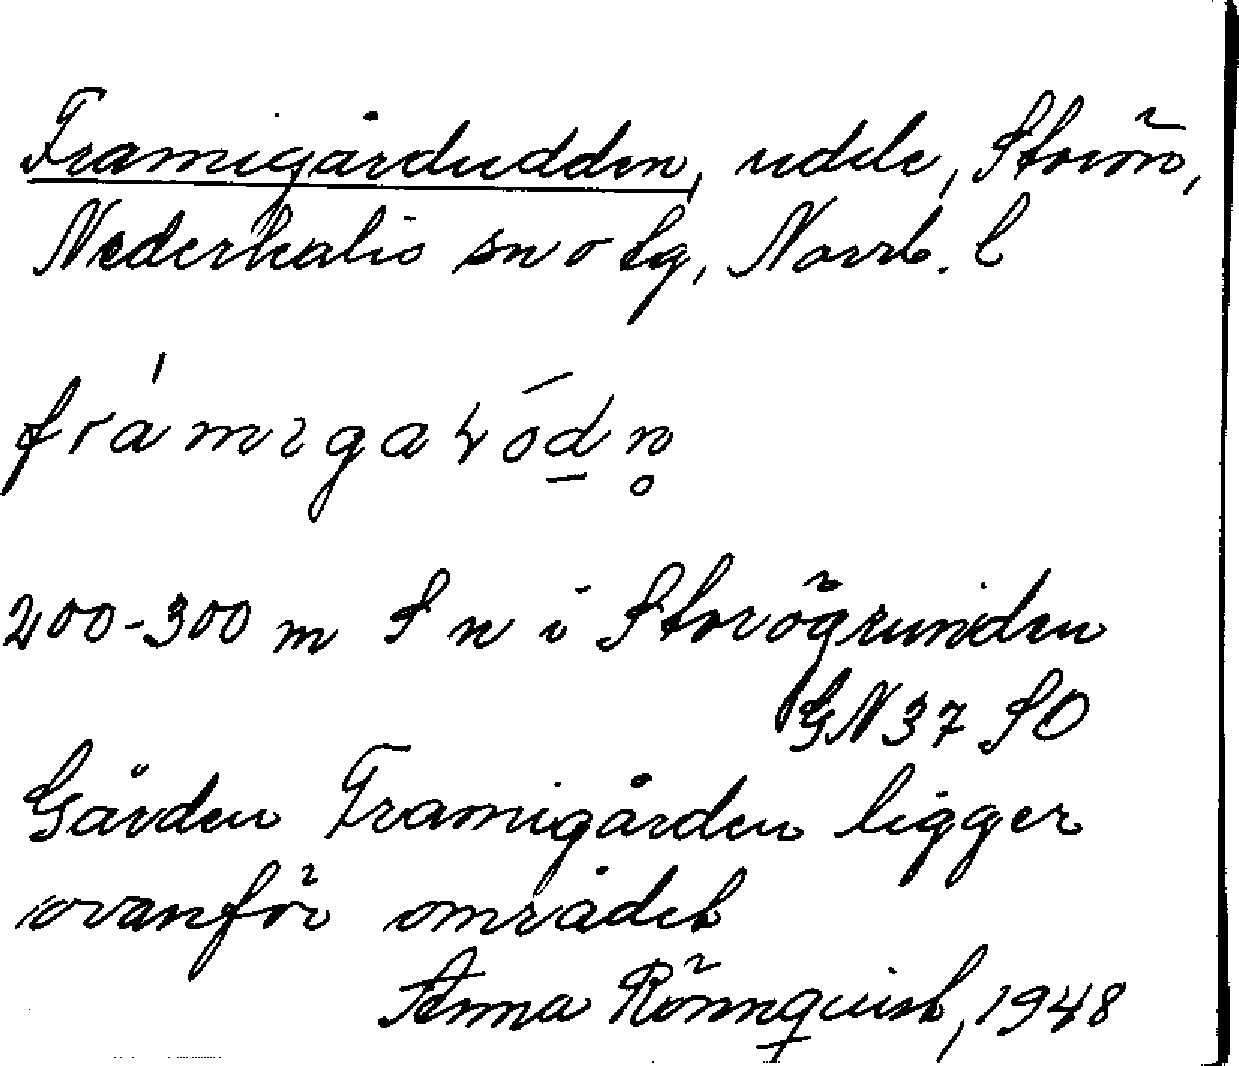 Framigårdudden, udde, Storön,
Nederkalix sn o tg, Norrb. l
frámıgaɽódn̥
200-300 m S n i Storögrunden
GN 37 SO
Gården Framigården ligger
ovanför området
Anna Rönnquist, 1948